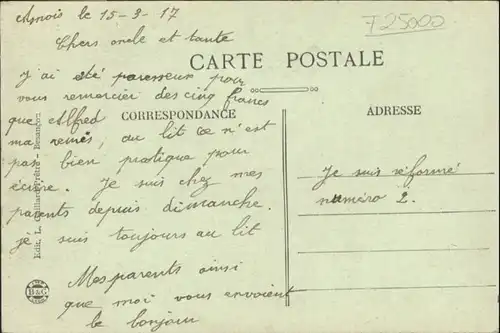 le 15-3-17
F25000
Chers oncle et tante
CARTE POSTALE
J'ai été paresseux pour
vous remercier des cinq francs
que Alfred
CORRESPONDANCE
ADRESSE
ma remis, au lit ce n'est
pas bien pratique pour
écrire. Je suis chez mes
parents depuis dimanche.
je suis toujours au lit
Mes parents ainsi
que moi vous envoient
le bonjour
Je suis réformé
numéro 2.
Edit. L. - Besançon
B&G